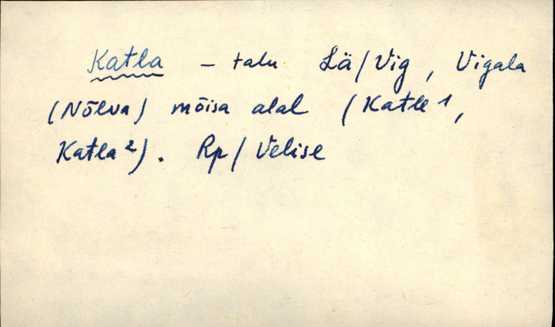 Katla - talu Lä/Vig, Vigala
(Nõlva) mõisa alal (Katle¹,
Katla²). Rp/Velise